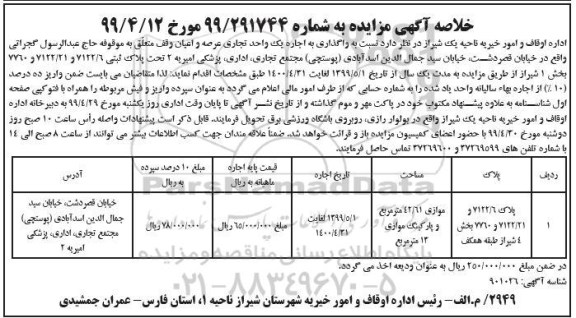 خلاصه آگهی مزایده به شماره ۹۹/۲۹۱۷۴۴ مورخ ۹۹/۴/۱۲
اداره اوقاف و امور خیریه ناحیه یک شیراز در نظر دارد نسبت به واگذاری به اجاره یک واحد تجاری عرصه و اعیان وقف متعلق به موقوفه حاج عبدالرسول گجراتی
واقع در خیابان قصردشت، خیابان سید جمال الدین اسدآبادی (پوستچی) مجتمع تجاری، اداری، پزشکی امیریه ۲ تحت پلاک ثبتی ۷۱۲۲/۶ و ۷۱۲۲/۲۱ و ۷۷۶۰
بخش ۱ شیراز از طریق مزایده به مدت یک سال از تاریخ ۱۳۹۹/۵/۱ لغایت ۱۴۰۰/۴/۳۱ طبق مشخصات اقدام نمایند: لذا متقاضیان می بایست ضمن واریز ده درصد
(۱۰٪) از اجاره بهاء سالیانه واحد یاد شده را به شماره حسابی که از طرف امور مالی اعلام می گردد به عنوان سپرده واریز و فیش مربوطه را همراه با فتوکپی صفحه
اول شناسنامه به علاوه پیشنهاد مکتوب خود در پاکت مهر و موم گذاشته و از تاریخ نشر آگهی تا پایان وقت اداری روز یکشنبه مورخ ۹۹/۴/۲۹ به دبیرخانه اداره
اوقاف و امور خیریه ناحیه یک شیراز واقع در بولوار رازی، روبروی باشگاه ورزشی برق تحویل فرمایند. قابل ذکر است پیشنهادات واصله رأس ساعت ۱۰ صبح روز
دوشنبه مورخ ۹۹/۴/۳۰ با حضور اعضای کمیسیون مزایده باز و قرائت خواهد شد. ضمنا علاقه مندان جهت کسب اطلاعات بیشتر می توانند از ساعت ۸ صبح الی ۱۴
با شماره تلفن های ۳۷۲۶۹۵۹۹ و ۳۷۲۶۹۶۰۰ تماس حاصل فرمایند.
ردیف پلاک مساحت تاریخ اجاره قیمت پایه اجاره ماهیانه به ریال مبلغ ۱۰ درصد سپرده به ریال آدرس
۱ پلاک ۷۱۲۲/۶ و ۷۱۲۲/۲۱ و ۷۷۶۰ بخش ۴ شیراز طبقه همکف موازی ۴۲/۶۱ مترمربع و پارکینگ موازی ۱۳ مترمربع ۱۳۹۹/۵/۱ لغایت ۱۴۰۰/۴/۳۱ مبلغ ۶۵/۰۰۰/۰۰۰ ریال ۷۸/۰۰۰/۰۰۰ ریال خیابان قصردشت، خیابان سید جمال الدین اسدآبادی (پوستچی) مجتمع تجاری، اداری، پزشکی امیریه ۲
در ضمن مبلغ ۲۵۰/۰۰۰/۰۰۰ ریال به عنوان ودیعه اخذ می گردد.
شناسه آگهی: ۹۰۱۰۲۶
۲۹۴۹/ م.الف- رئیس اداره اوقاف و امور خیریه شهرستان شیراز ناحیه ۱، استان فارس- عمران جمشیدی
ParsNamadData
پایگاه اطلاع رسانی مناقصه و مزایده
۰۲۱-۸۸۳۴۹۶۷۰-۵